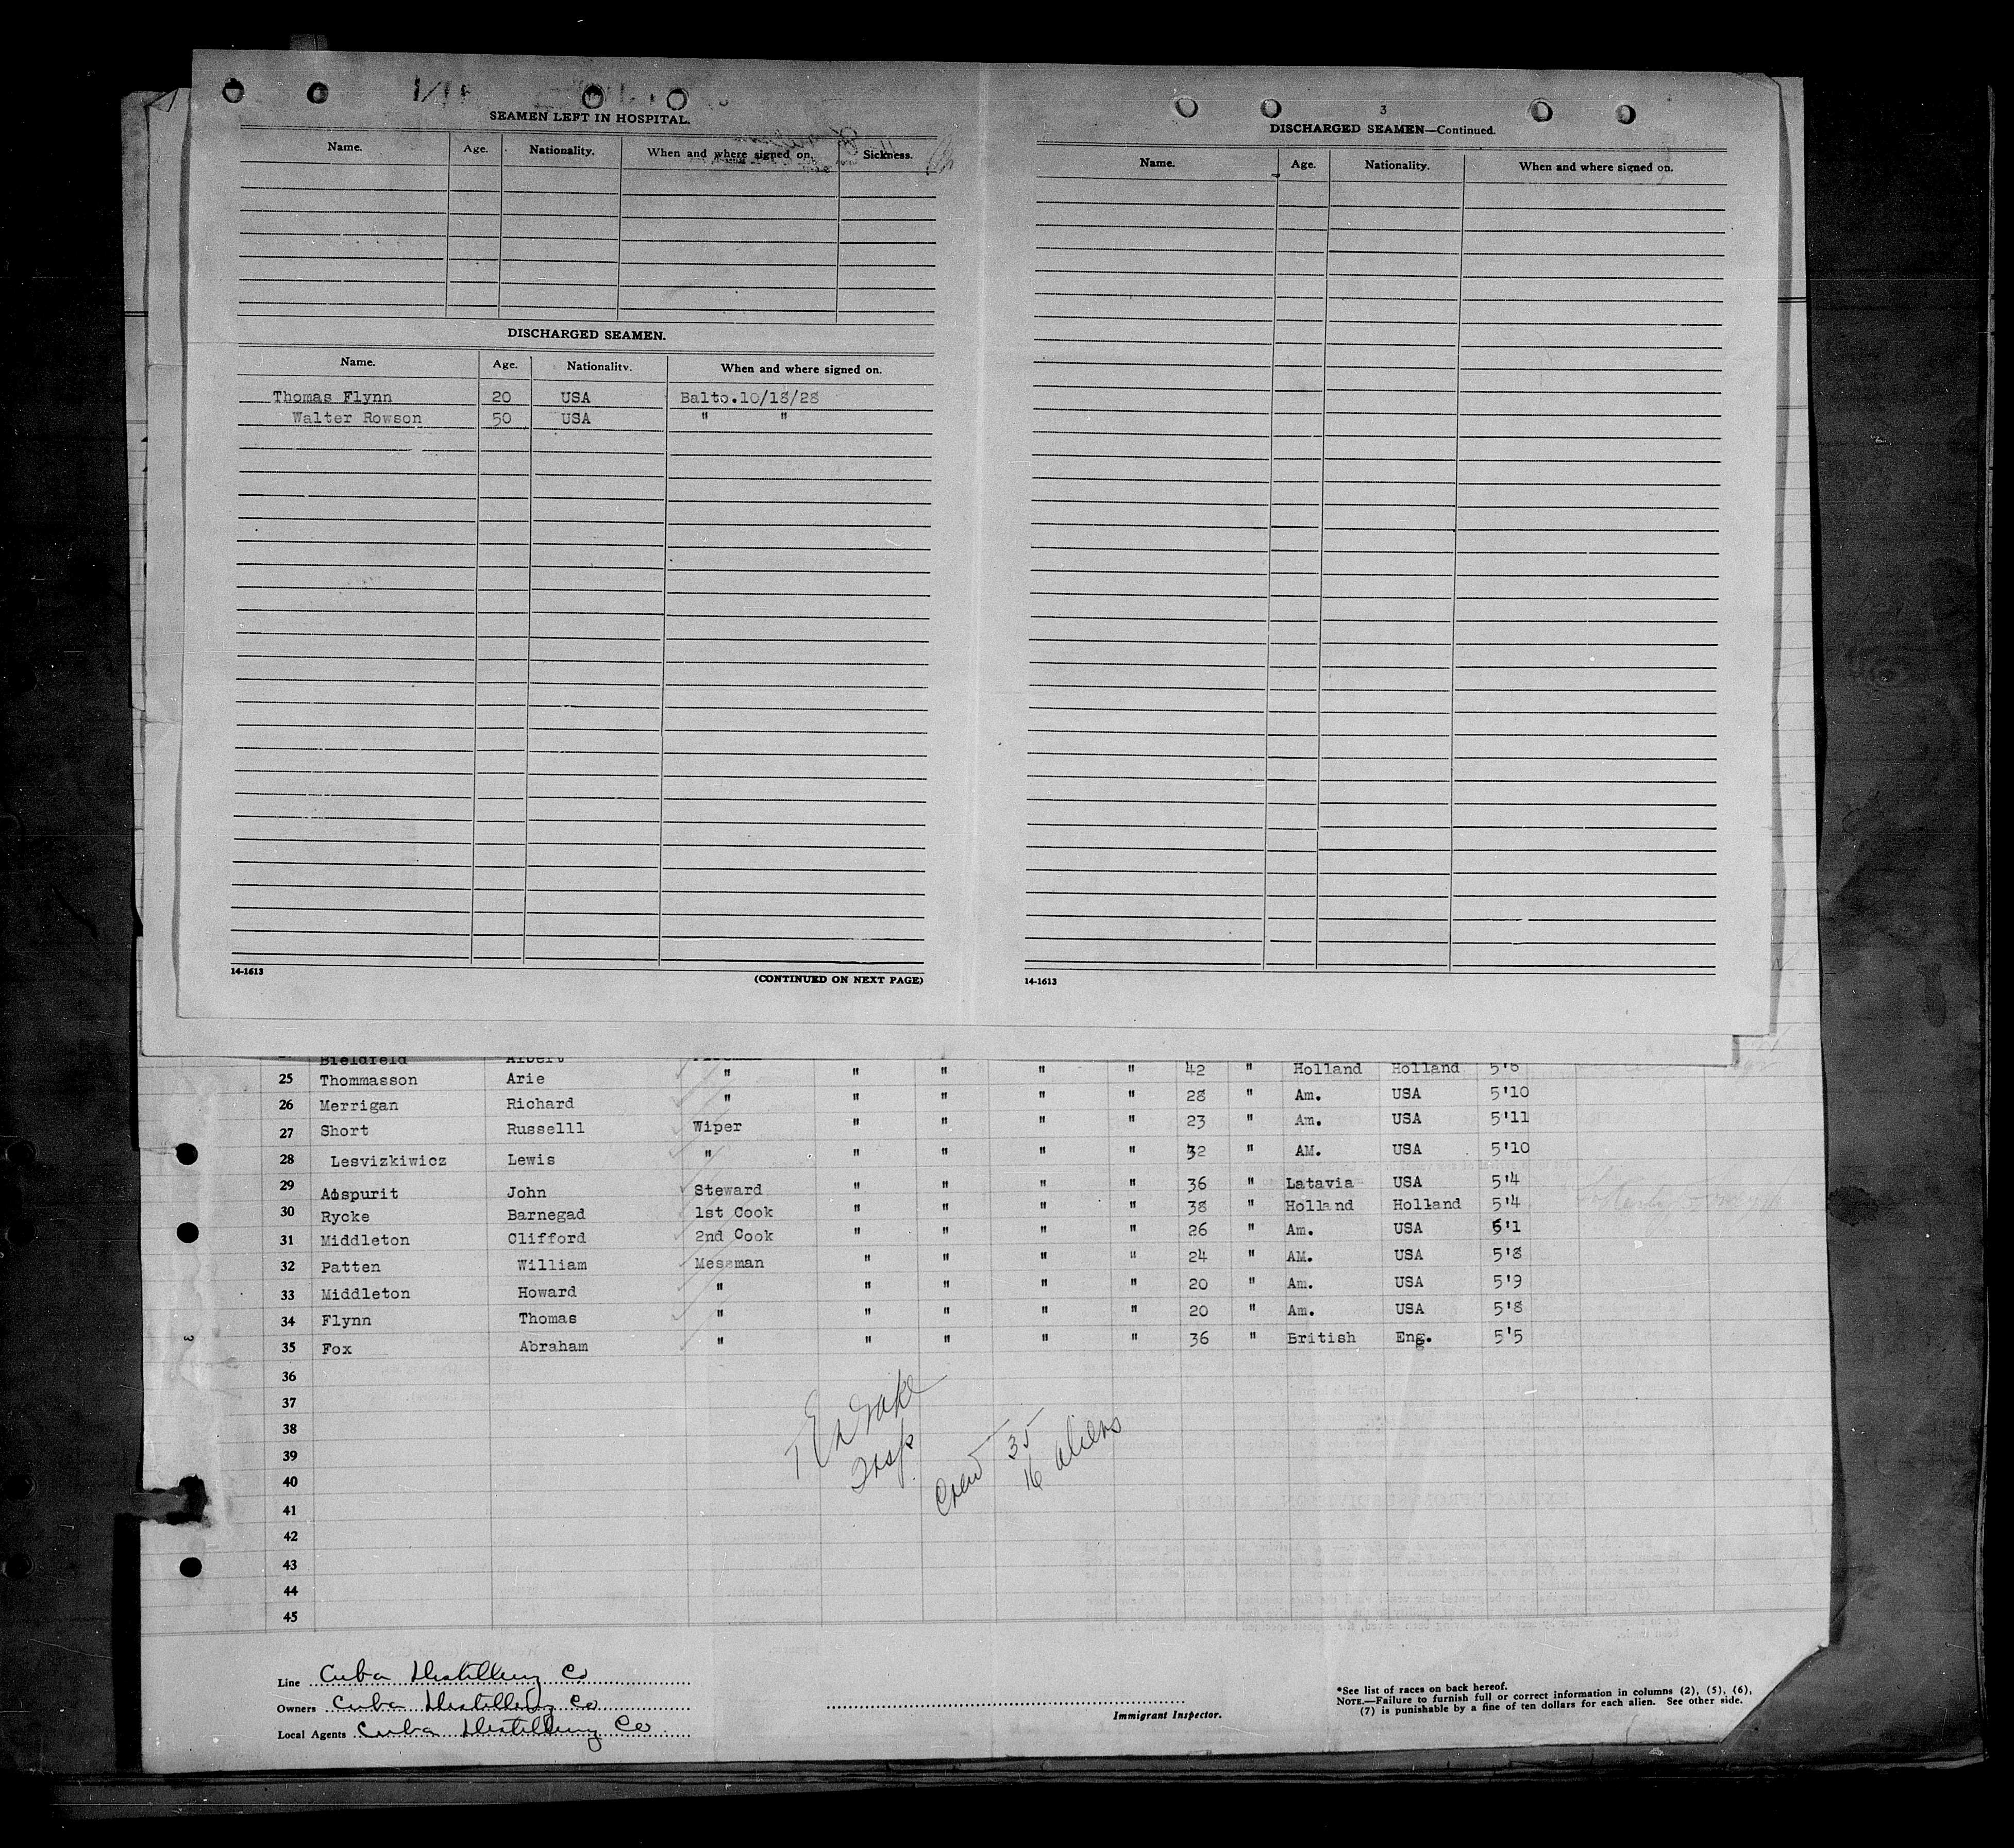 SEAMEN LEFT IN HOSPITAL.
Name. Age. Nationality. When and where signed on. Sickness.
DISCHARGED SEAMEN.
Name. Age. Nationality. When and where signed on.
Thomas Flynn 20 USA Balto.10/18/28
Walter Rowson 50 USA " "
14-1613 (CONTINUED ON NEXT PAGE)
3
DISCHARGED SEAMEN—Continued.
Name. Age. Nationality. When and where signed on.
14-1613
Bieldfeld Albert
25 Thommasson Arie " " " " " 42 " Holland Holland
26 Merrigan Richard " " " " " 28 " Am. USA 5'10
27 Short Russelll Wiper " " " " 23 " Am. USA 5'11
28 Lesvizkiwicz Lewis " " " " " 32 " AM. USA 5'10
29 Adspurit John Steward " " " " 36 " Latavia USA 5'4
30 Rycke Barnegad 1st Cook " " " " 38 " Holland Holland 5'4
31 Middleton Clifford 2nd Cook " " " " 26 " Am. USA 5'1
32 Patten William Messman " " " " 24 " AM. USA 5'8
33 Middleton Howard " " " " " 20 " Am. USA 5'9
34 Flynn Thomas " " " " " 20 " Am. USA 5'8
35 Fox Abraham " " " " " 36 " British Eng. 5'5
36
37
38
39
40
41
42
43
44
45
Drake
Insp
Crew 35
16 aliens
Line Cuba Distilling Co
Owners Cuba Distilling Co
Local Agents Cuba Distilling Co
Immigrant Inspector.
*See list of races on back hereof.
NOTE.—Failure to furnish full or correct information in columns (2), (5), (6),
(7) is punishable by a fine of ten dollars for each alien. See other side.